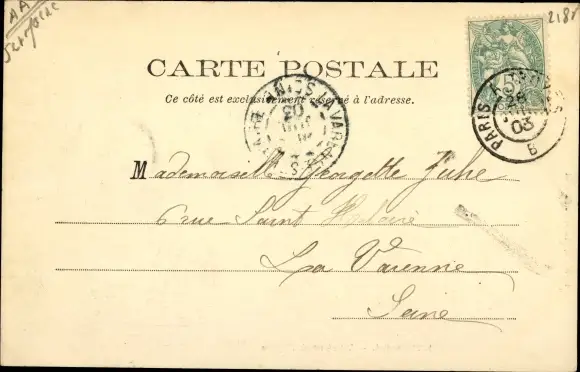 AA
2181
CARTE POSTALE
Ce côté est exclusivement réservé à l'adresse.
PARIS
03
Mademoiselle Georgette Juhe
6 rue Saint Hilaire
La Varenne
Seine